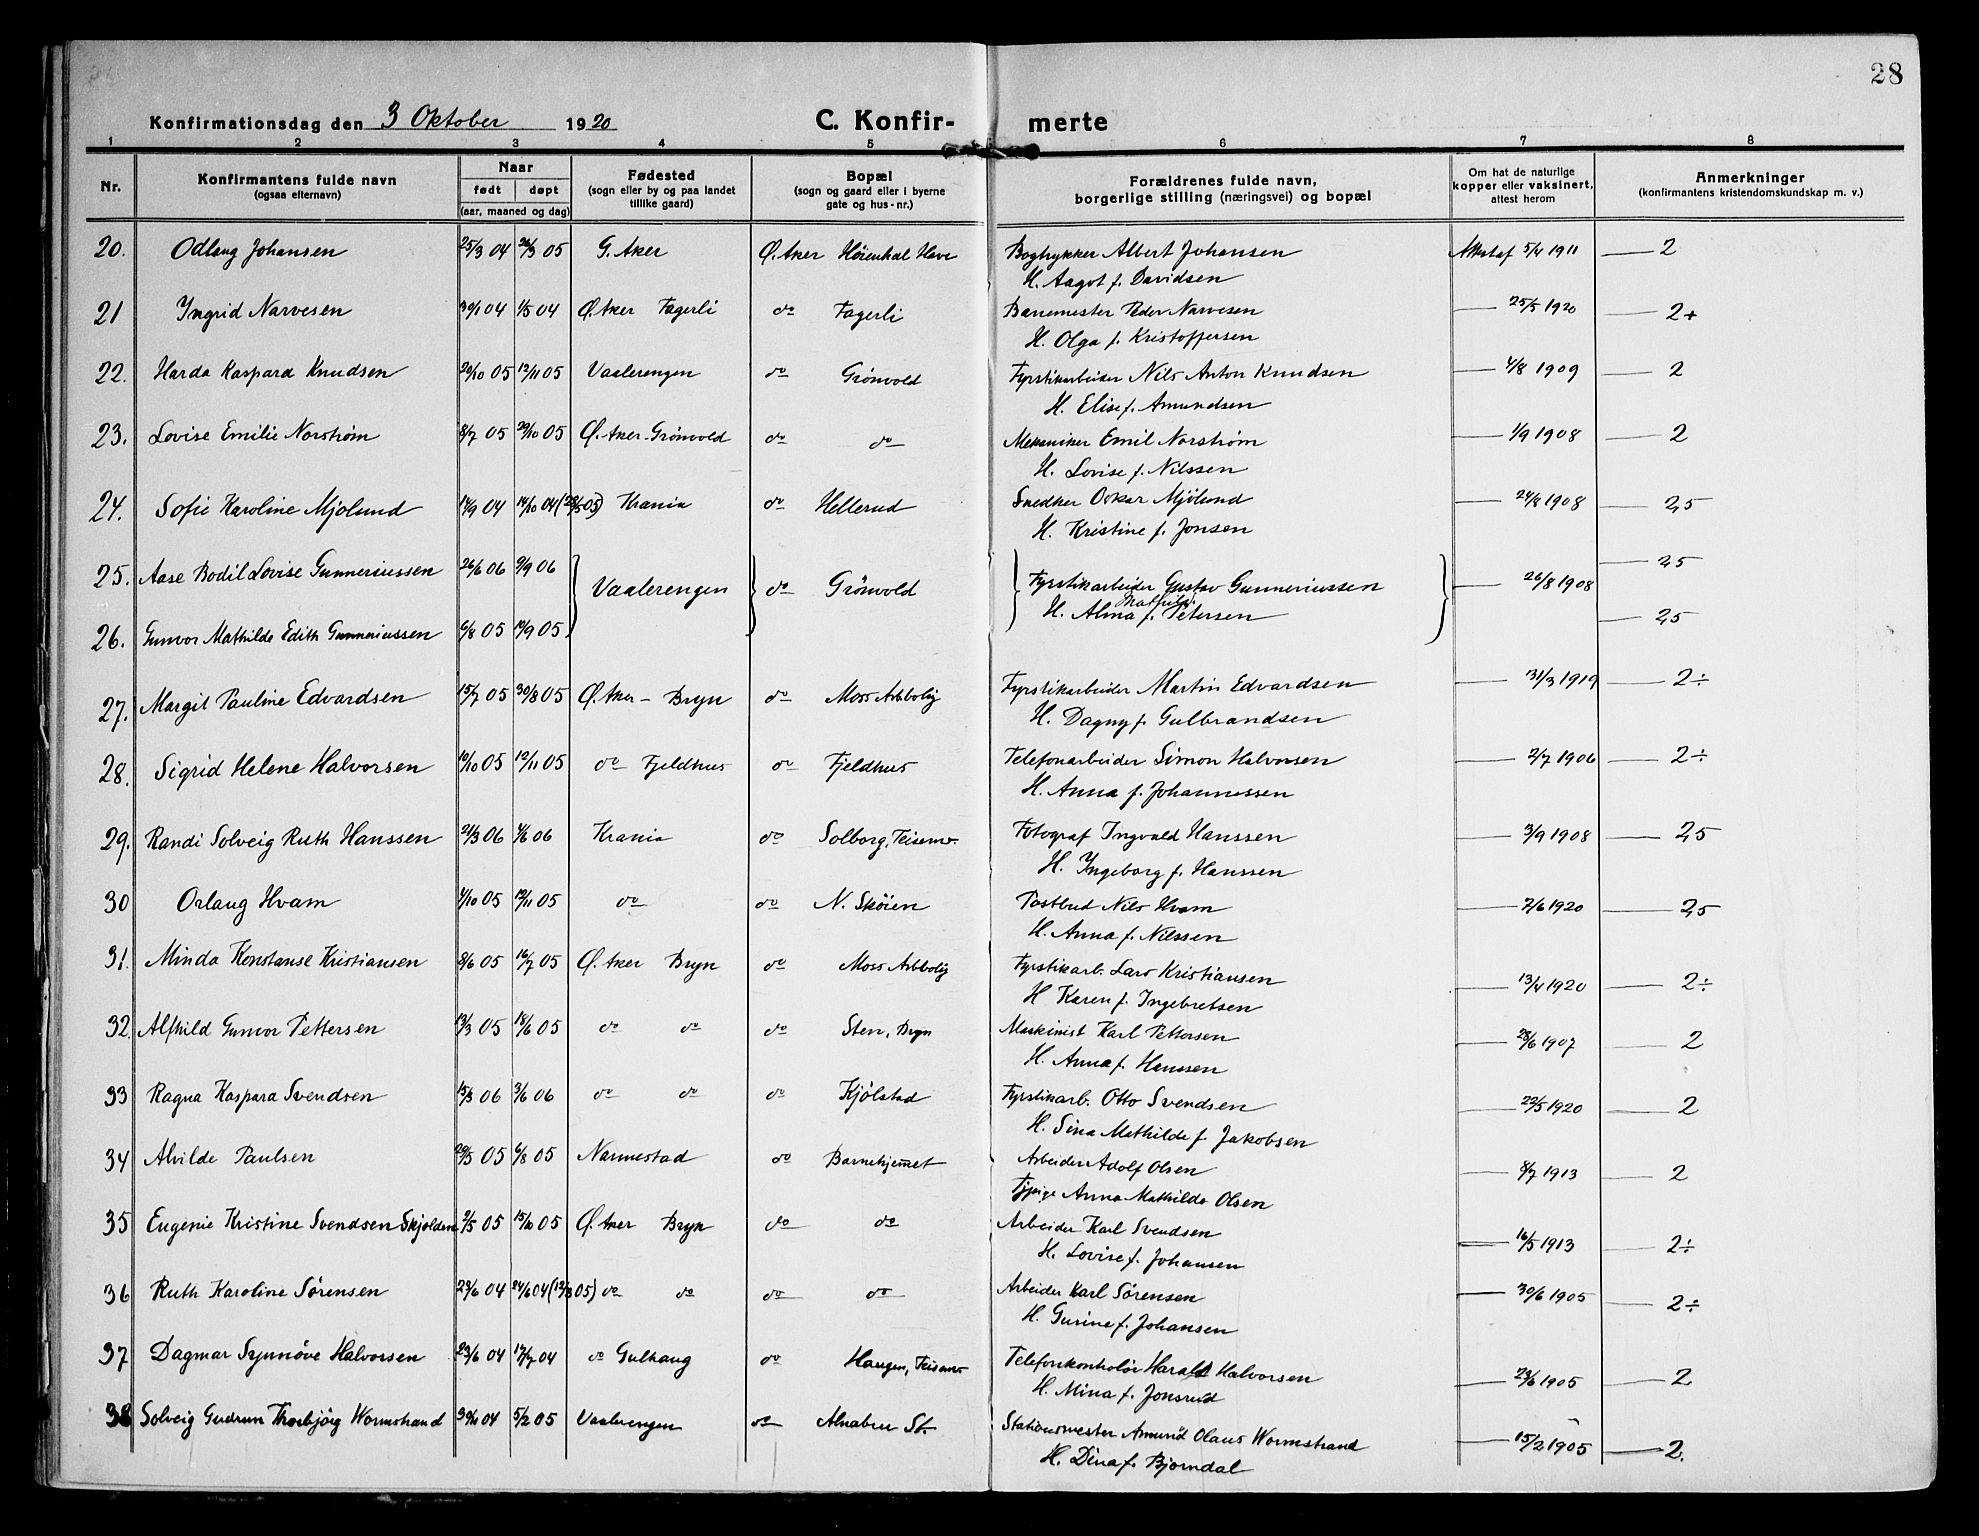 28
Konfirmationsdag den 3 Oktober 1920 C. Konfirmerte
1 2 3 4 5 6 7 8
Nr. Konfirmantens fulde navn (ogsaa efternavn) Naar født døpt (aar, maaned og dag) Fødested (sogn eller by og paa landet tillike gaard) Bopæl (sogn og gaard eller i byerne gate og hus-nr.) Forældrenes fulde navn, borgerlige stilling (næringsvei) og bopæl Om hat de naturlige kopper eller vaksinert, attest herom Anmerkninger (konfirmantens kristendomskundskap m. v.)
20. Odlaug Johansen 25/3 04 26/3 05 G. Aker Ø. Aker Høienhal Have Bogtrykker Albert Johansen 5/4 1911 2
H. Aagot f. Davidsen
21 Ingrid Narvesen 30/1 04 1/5 04 Ø. Aker Fagerli do Fagerli Banemester Peder Narvesen 25/5 1920 2+
H. Olga f. Kristoffersen
22. Harda Kaspara Knudsen 20/10 05 12/11 05 Vaalerengen do Grönvold Fyrstikarbeider Nils Anton Knudsen 4/8 1909 2
H. Elise f. Amundsen
23. Lovise Emilie Norstrøm 8/7 05 29/10 05 Ø. Aker-Grönvold do do Mekaniker Emil Norstrøm 1/9 1908 2
H. Lovise f. Nilssen
24. Sofie Karoline Mjölund 14/9 04 14/10 04 (28/5 05) Krania do Hellerud Snedker Oskar Mjölund 24/8 1908 2,5
H. Kristine f. Jonsen
25. Aase Bodil Lovise Gunneriussen 26/6 06 9/9 06 Vaalerengen do Grönvold Fyrstikarbeider Gustav Gunneriussen 26/8 1908 2,5
H. Alma Mathilde f. Petersen
26. Gunvor Mathilde Edith Gunneriussen 6/8 05 10/9 05 2,5
27. Margit Pauline Edvardsen 15/7 05 30/8 05 Ø. Aker - Bryn do Moss Arbbolig Fyrstikarbeider Martin Edvardsen 31/3 1919 2÷
H. Dagny f. Gulbrandsen
28. Sigrid Helene Halvorsen 10/10 05 12/11 05 do Fjeldhus do Fjeldhus Telefonarbeider Simon Halvorsen 2/7 1906 2÷
H. Anna f. Johannessen
29. Randi Solveig Ruth Hanssen 21/3 06 4/6 06 Krania do Solborg, Teisenv. Fotograf Ingvald Hanssen 3/9 1908 2,5
H. Ingeborg f. Hanssen
30 Orlaug Hvam 4/10 05 12/11 05 do do N. Skøien Postbud Nils Hvam 2/6 1920 2,5
H. Anna f. Nilssen
31. Minda Konstanse Kristiansen 8/6 05 16/7 05 Ø. Aker Bryn do Moss Arbbolig Fyrstikarb. Lars Kristiansen 13/4 1920 2÷
H Karen f. Ingebretsen
32. Alfhild Gunvor Pettersen 13/3 05 18/6 05 do do do Sten, Bryn Maskinist Karl Pettersen 28/6 1907 2
H. Anna f. Hanssen
33 Ragna Kaspara Svendsen 15/3 06 3/6 06 do do do Kjölstad Fyrstikarb. Otto Svendsen 22/5 1920 2
H. Sina Mathilde f. Jakobsen
34 Alvilde Paulsen 29/5 05 6/8 05 Nannestad do Barnehjemmet Arbeider Adolf Olsen 8/7 1913 2
Anna Mathilde Olsen
35 Eugenie Kristine Svendsen Skjolden 2/5 05 15/10 05 Ø. Aker Bryn do do Arbeider Karl Svendsen 16/5 1913 2÷
H. Lovise f. Johansen
36 Ruth Karoline Sörensen 23/6 04 24/6 04 (12/3 05) do do do do Arbeider Karl Sörensen 30/6 1905 2÷
H. Gurine f. Johansen
37 Dagmar Synnöve Halvorsen 23/6 04 17/7 04 do Gulhaug do Haugen, Teisenv. Telefonkontrolör Harald Halvorsen 23/6 1905 2
H. Mina f. Jonsrud
38 Solveig Gudrun Thorbjörg Wormstrand 30/10 04 5/2 05 Vaalerengen do Alnabru St. Stationsmester Amund Olaus Wormstrand 15/2 1905 2.
H. Dina f. Bjørndal